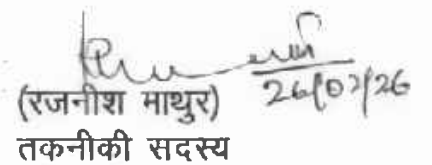 26/02/26
(रजनीश माथुर)
तकनीकी सदस्य